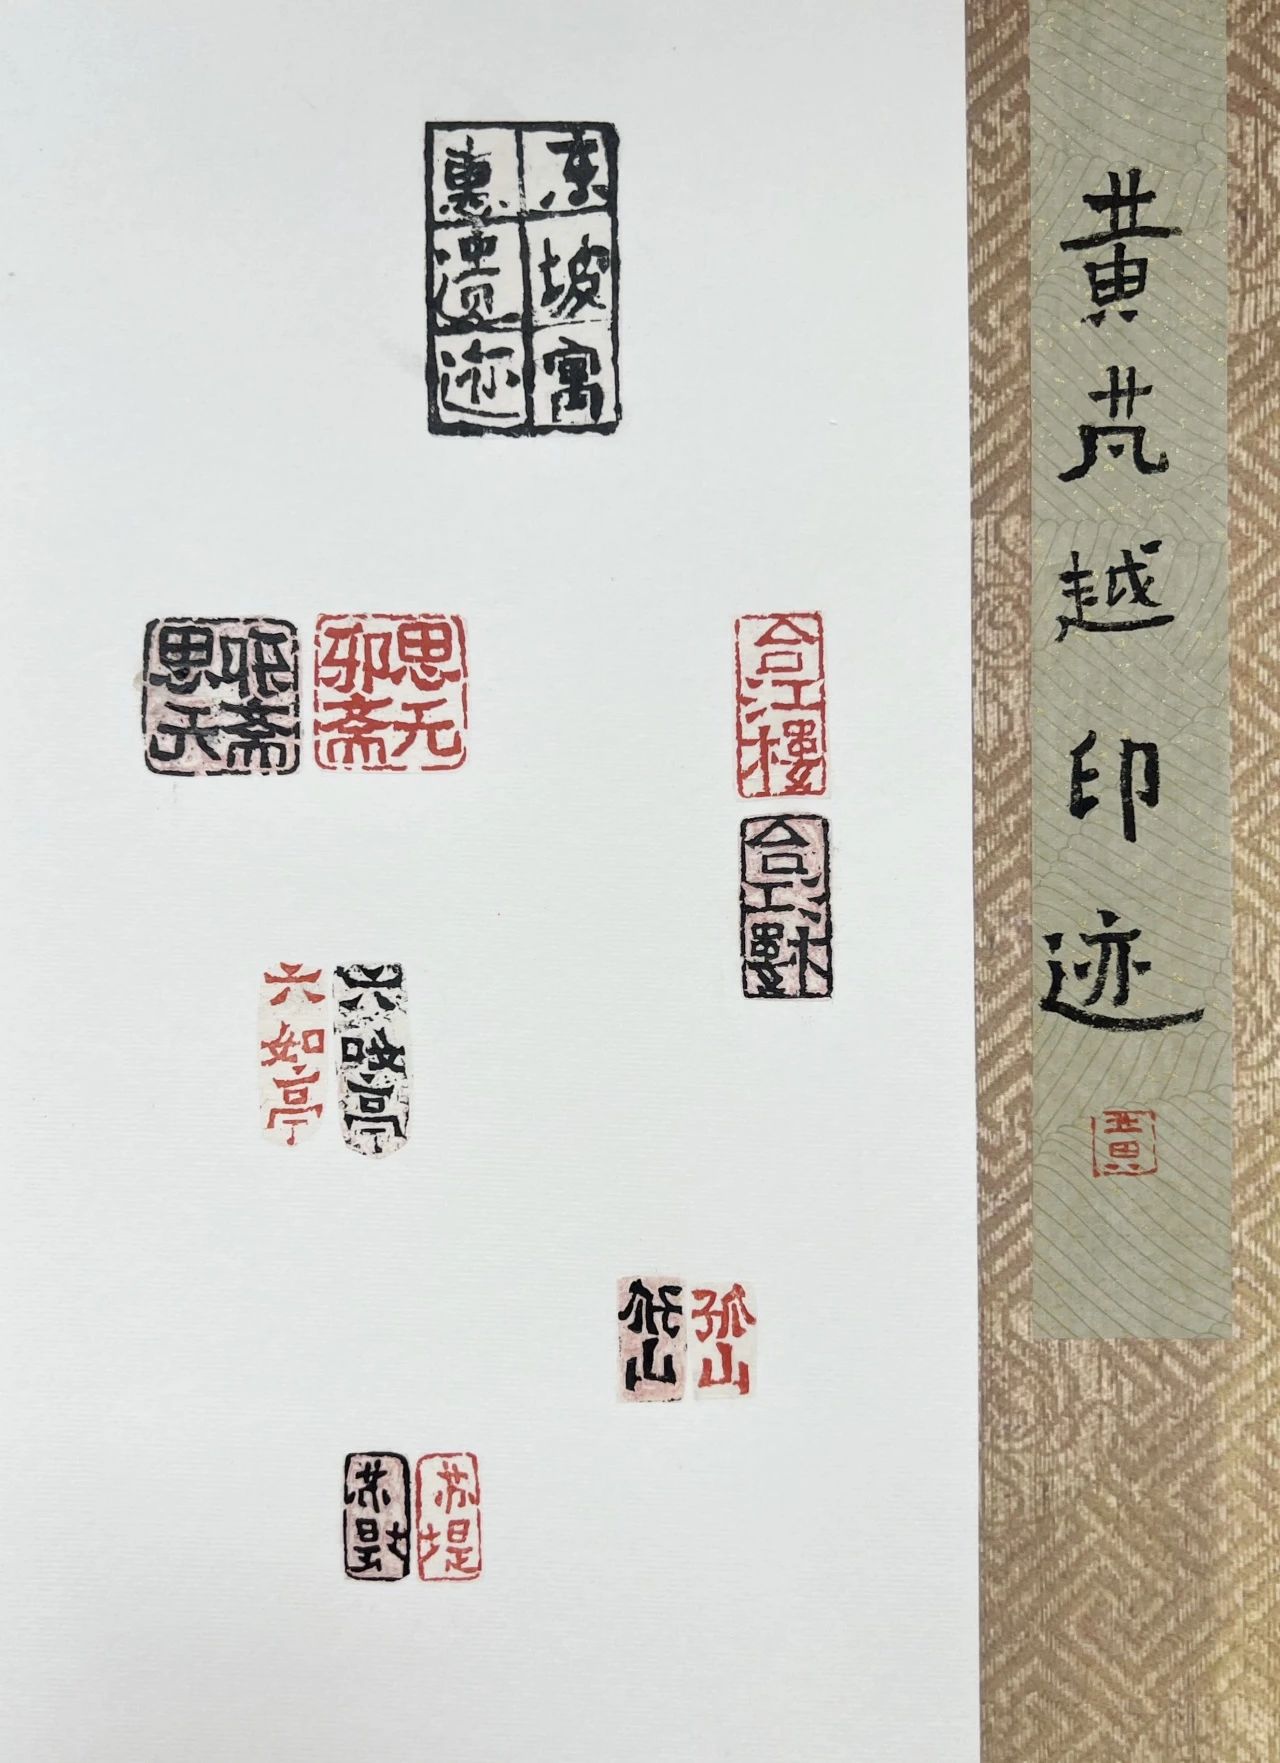 东坡寓
惠遗迹
思无邪斋
思无邪斋
合江楼
合江樓
六如亭
六如亭
孤山
孤山
苏堤
苏堤
黄芃越印迹
黄